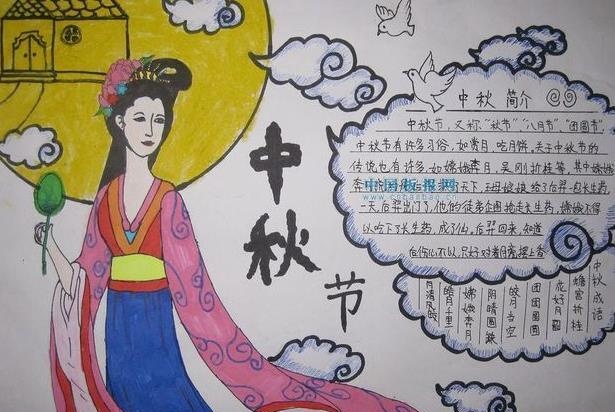 中秋节
中秋 简介
中秋节，又称"秋节""八月节""团圆节"
中秋节有许多习俗，如赏月、吃月饼，关于中秋节的
传说也有许多，如嫦娥奔月，吴刚折桂等，其中嫦娥
中国板报网
一天后羿出门了，他的徒弟企图抢走长生药，嫦娥不得
以吃下了长生药，成了仙。后羿回来，知道
后伤心不以，只好对着月亮摆上香
中秋成语
蟾宫折桂
花好月圆
团团圆圆
皓月当空
阴晴圆缺
嫦娥奔月
皓月千里